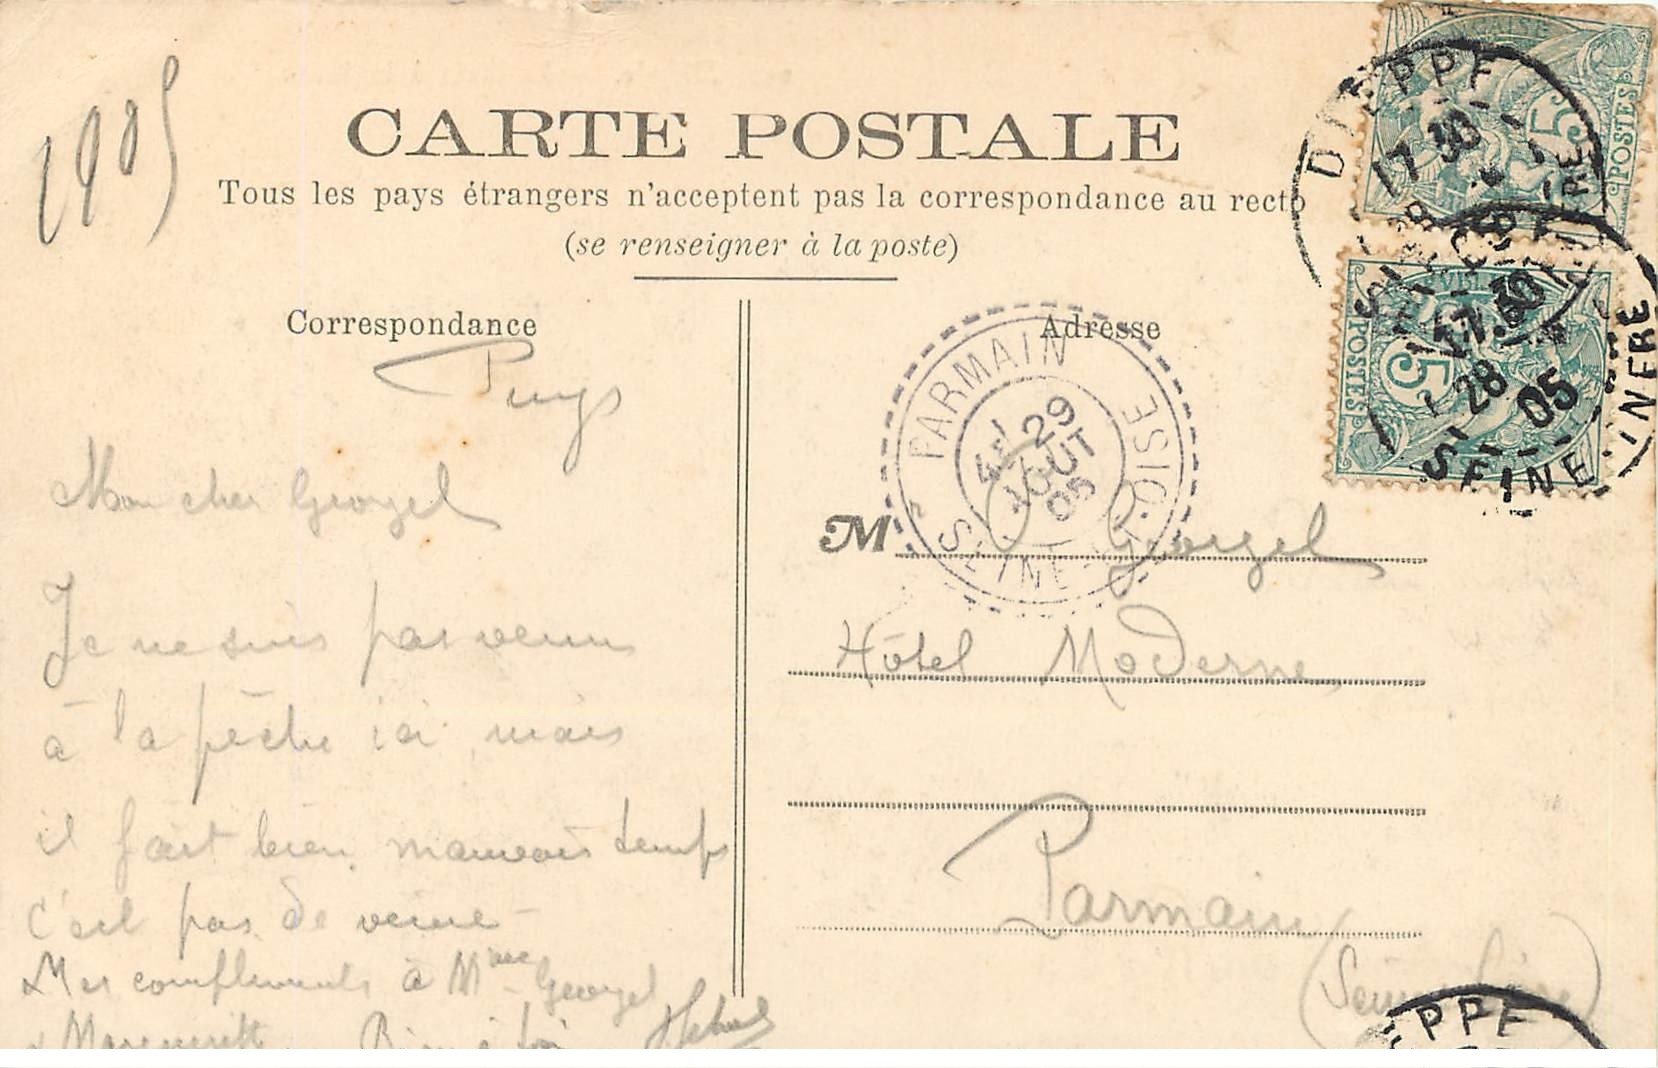 1905
CARTE POSTALE
Tous les pays étrangers n'acceptent pas la correspondance au recto
(se renseigner à la poste)
Correspondance
Puys
Mon cher Georgel
Je ne suis pas venu
à la pêche ici mais
il fait bien mauvais temps
c'est pas de veine -
Mes compliments à Mme Georgel
& Marguerite Bien à toi
Adresse
M Georgel
Hôtel Moderne
Parmain
(Seine & Oise)
PARMAIN
29
AOUT
05
SEINE-ET-OISE
DIEPPE
17 30
28
POSTES
5
17 30
28
05
SEINE INFRE
5
POSTES
EPPE